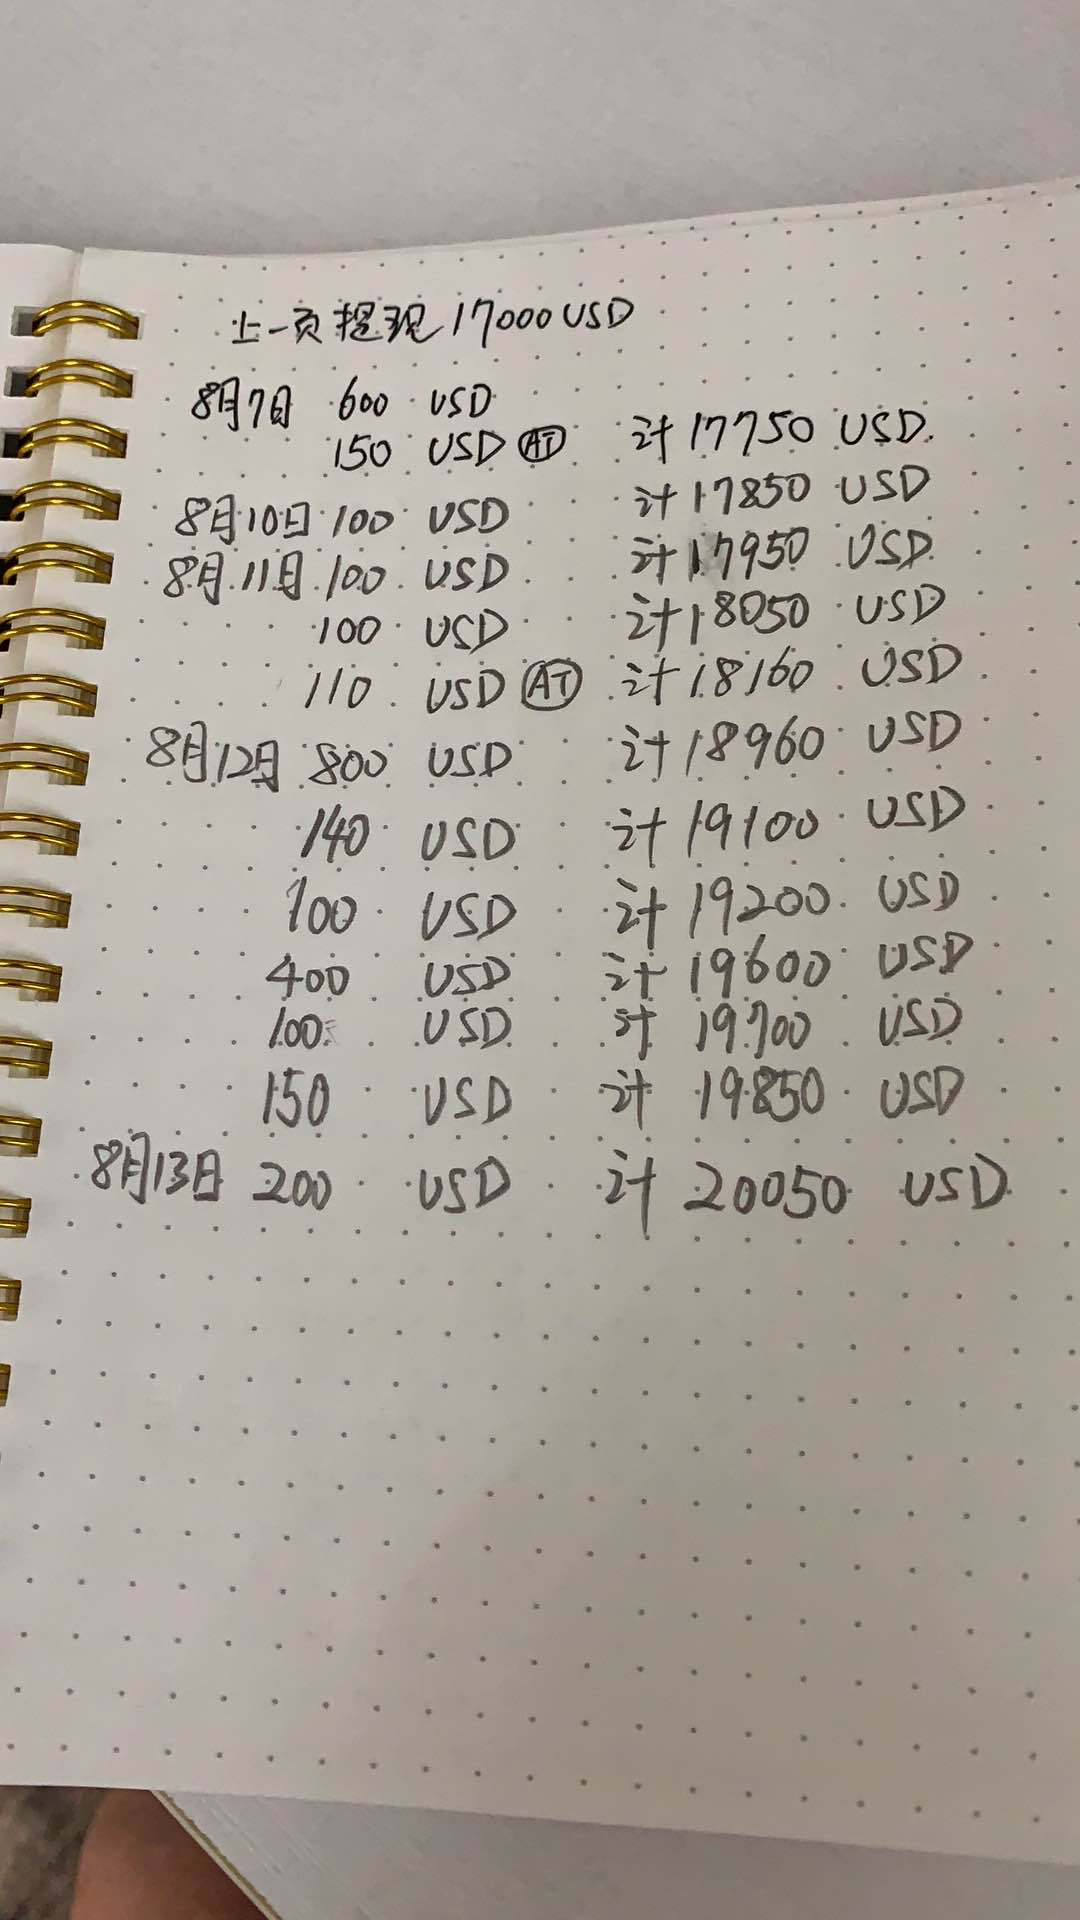 上一页提现17000USD
8月7日 600 USD
150 USD AT 计17750 USD
8月10日 100 USD 计17850 USD
8月11日 100 USD 计17950 USD
100 USD 计18050 USD
110 USD AT 计18160 USD
8月12日 800 USD 计18960 USD
140 USD 计19100 USD
100 USD 计19200 USD
400 USD 计19600 USD
100 USD 计19700 USD
150 USD 计19850 USD
8月13日 200 USD 计20050 USD